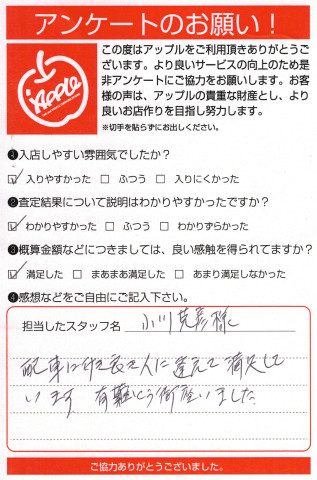 アンケートのお願い！
Apple
この度はアップルをご利用頂きありがとうご
ざいます。より良いサービスの向上のため是
非アンケートにご協力をお願いします。お客
様の声は、アップルの貴重な財産とし、より
良いお店作りを目指し努力します。
※切手を貼らずにお出しください。
❶入店しやすい雰囲気でしたか？
☑ 入りやすかった □ ふつう □ 入りにくかった
❷査定結果について説明はわかりやすかったですか？
☑ わかりやすかった □ ふつう □ わかりずらかった
❸概算金額などにつきましては、良い感触を得られてますか？
☑ 満足した □ まあまあ満足した □ あまり満足しなかった
❹感想などをご自由にご記入下さい。
担当したスタッフ名 小川 克彦 様
車に 良い人に 逢えて 満足して
います 有難とう御座いました。
ご協力ありがとうございました。